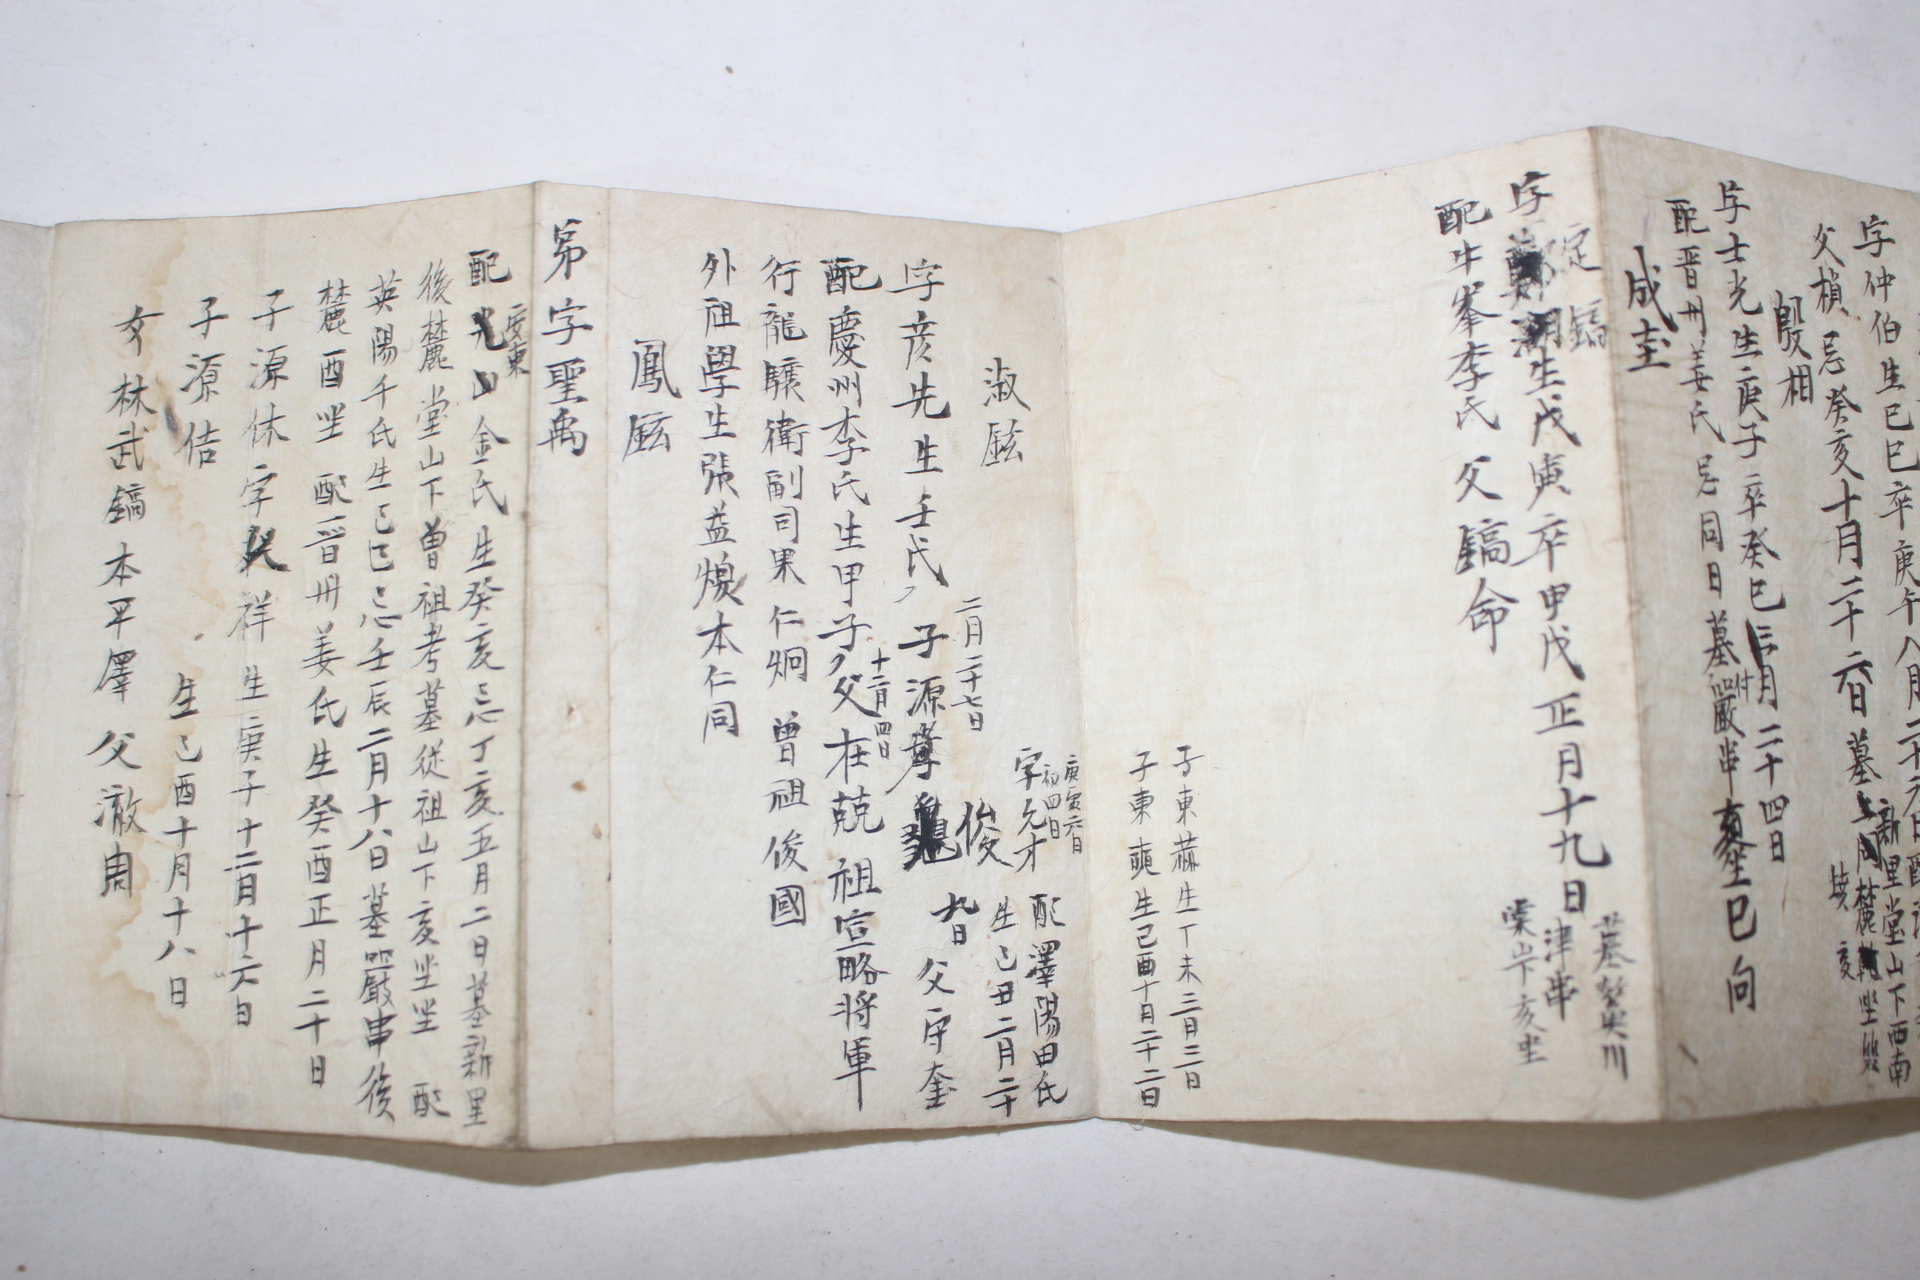 字仲伯生己巳卒庚午八月二十九日配
新里堂山下酉南
父楨忌癸亥十月二十六日墓
殷相
字士光生庚子卒癸巳二月二十四日
配晋州姜氏忌同日墓嚴串亥坐巳向
成圭
字定鎬生戊寅卒甲戌正月十九日
津串
亥坐
配牛峯李氏父鎬命
子東蘇生丁未三月三日
子東奭生己酉十月二十二日
淑鉉
字允才配潭陽田氏
生己丑二月二十九日
字彦先生壬戌二月二十七日子源俊父守奎
配慶州李氏生甲子十二月四日父在兢祖宣略將軍
行龍驤衛副司果仁炯曾祖俊國
外祖學生張益煥本仁同
鳳鉉
弟字聖禹
配金氏生癸亥忌丁亥五月二日墓新里
後麓堂山下曾祖考墓從祖山下亥坐坐配
英陽千氏生己巳忌壬辰二月十八日墓嚴串後
麓酉坐配晋州姜氏生癸酉正月二十日
子源休字祥生庚子十二月十六日
子源佶生己酉十月十八日
女林武鎬本平澤父澈周